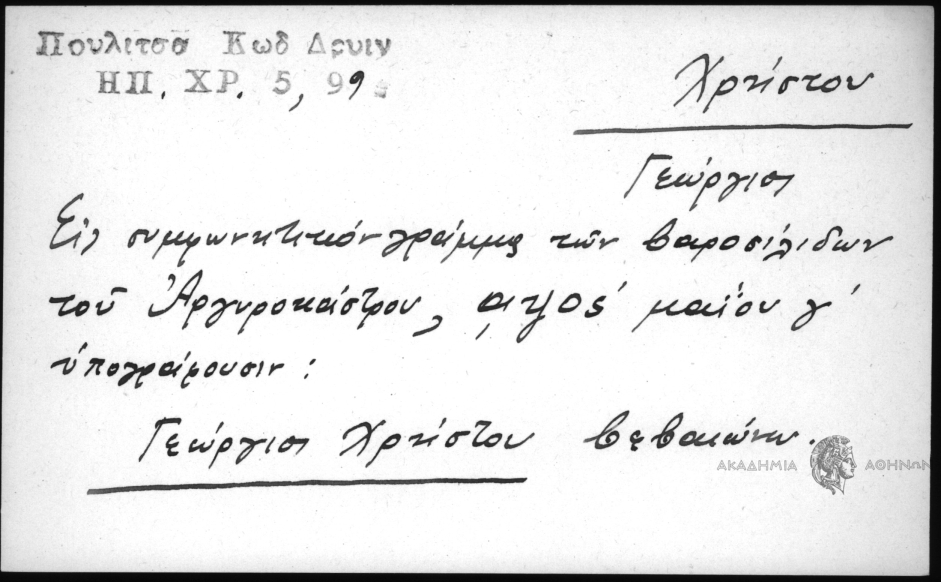 Πουλιτσα Κωδ Δρυιν
ΗΠ. ΧΡ. 5, 99
Χρήστου
Γεώργιοι
Εἰς συμφωνητικόν γράμμα τῶν βαροσιλιδων
τοῦ Ἀργυροκάστρου, ͵αψοϛ΄ μαΐου γ΄
ὑπογράφουσιν:
Γεώργιοι Χρήστου βεβαιώνω.
ΑΚΑΔΗΜΙΑ ΑΘΗΝΩΝ